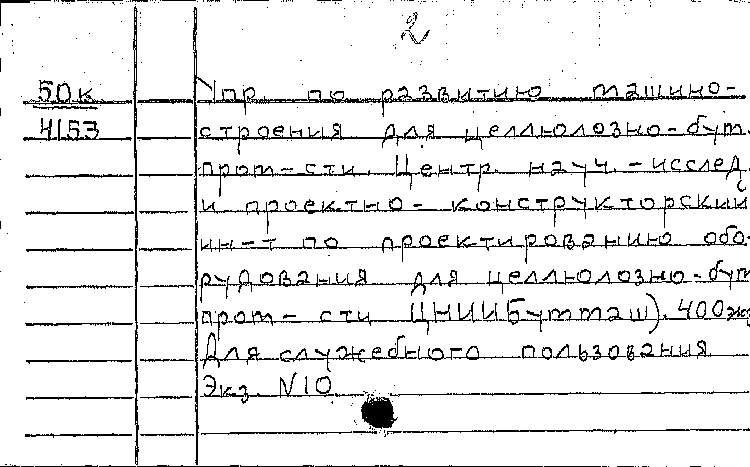 2
50к Упр. по развитию машино-
4153 строения для целлюлозно-бум.
пром-сти. Центр. науч.-исслед.
и проектно-конструкторский
ин-т по проектированию обо-
рудования для целлюлозно-бум
пром-сти ЦНИИБуммаш). 400экз
Для служебного пользования
Экз. N10